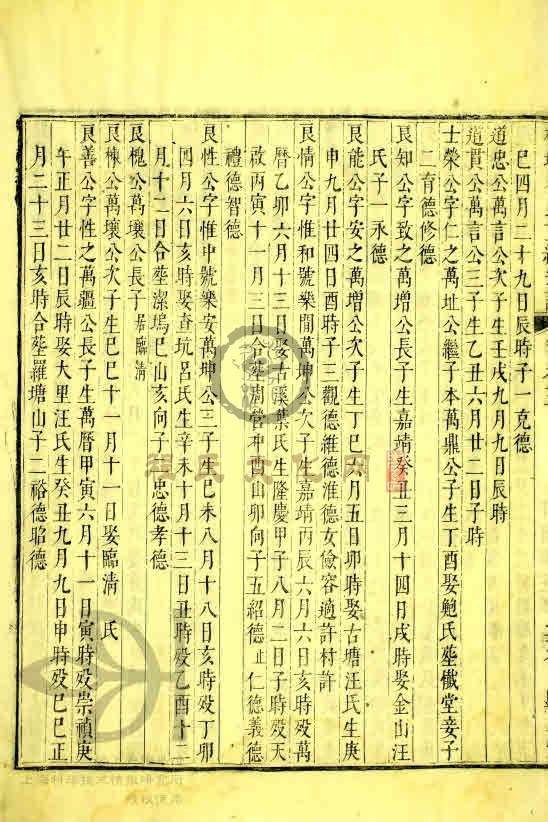 巳四月二十九日辰時子一克德
道忠公萬言公次子生壬戌九月九日辰時
道貫公萬言公三子生乙丑六月廿二日子時
士榮公字仁之萬址公繼子本萬鼎公子生丁酉娶鮑氏塟儀堂妾子
二育德修德
良知公字致之萬增公長子生嘉靖癸丑三月十四日戌時娶金山汪
氏子一永德
良能公字安之萬增公次子生丁巳六月五日卯時娶古塘汪氏生庚
申九月廿四日酉時子三觀德維德淮德女儉容適許村許
良情公字惟和號樂閒萬坤公次子生嘉靖丙辰六月六日亥時歿萬
曆乙卯六月十三日娶古溪葉氏生隆慶甲子八月二日子時歿天
啟丙寅十一月三日合塟灣管冲酉山卯向子五紹德止仁德義德
禮德智德
良性公字惟中號樂安萬坤公三子生己未八月十八日亥時歿丁卯
四月六日亥時娶查坑呂氏生辛未十月十三日丑時歿乙酉十二
月十二日合塟潔塢巳山亥向子二忠德孝德
良槐公萬壤公長子居臨清
良棟公萬壤公次子生己巳十一月十一日娶臨清 氏
良善公字性之萬疆公長子生萬曆甲寅六月十一日寅時歿崇禎庚
午正月廿二日辰時娶大里汪氏生癸丑九月九日申時歿己巳正
月二十三日亥時合塟羅塘山子二裕德昭德
上海科學技術情報研究所